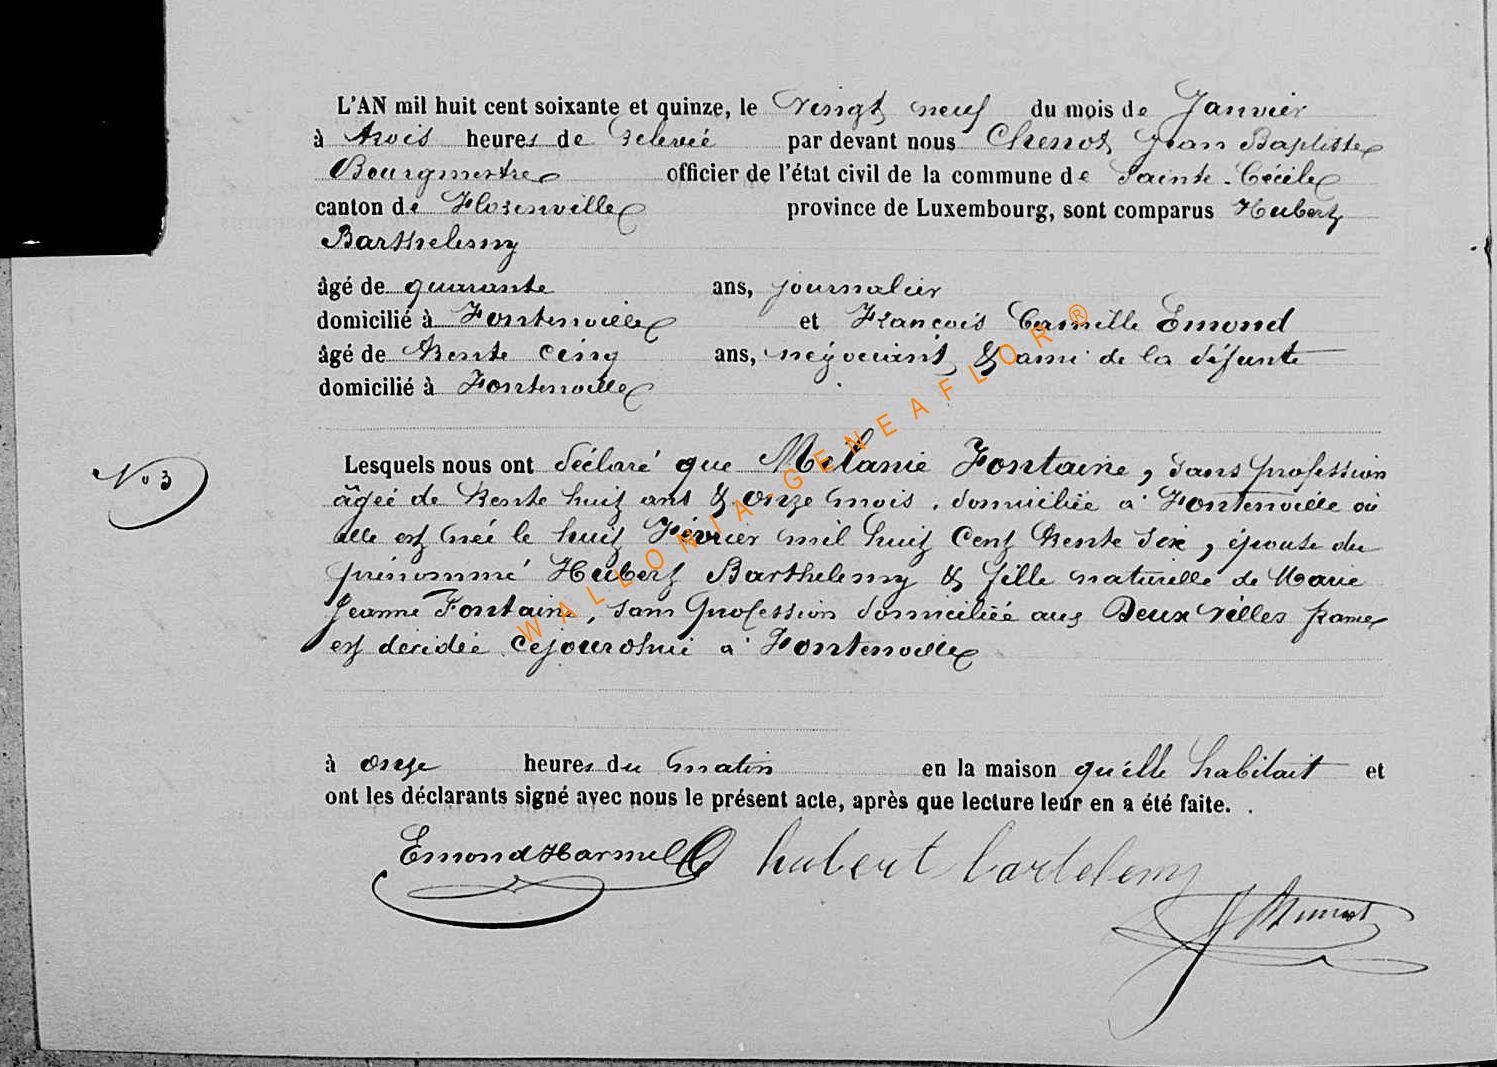 L'AN mil huit cent soixante et quinze, le Vingt neuf du mois de Janvier
à trois heures de relevée par devant nous Chenot Jean Baptiste
Bourgmestre officier de l'état civil de la commune de Sainte-Cécile
canton de Florenville province de Luxembourg, sont comparus Hubert
Barthelemy
âgé de quarante ans, journalier
domicilié à Fontenoille et François Camille Emond
âgé de trente cinq ans, négociant & ami de la défunte
domicilié à Fontenoille
No 3
Lesquels nous ont déclaré que Mélanie Fontaine, sans profession
âgée de trente huit ans & onze mois, domiciliée à Fontenoille où
elle est née le huit Février mil huit cent trente six, épouse du
prénommé Hubert Barthelemy & fille naturelle de Marie
Jeanne Fontaine, sans profession domiciliée aux Deux Villes france
est décédée cejourdhui à Fontenoille
à onze heures du matin en la maison qu'elle habitait et
ont les déclarants signé avec nous le présent acte, après que lecture leur en a été faite.
Emond Harmel hubert bartelemy
JBChenot
WALLONIA-GENEAFLOR ®